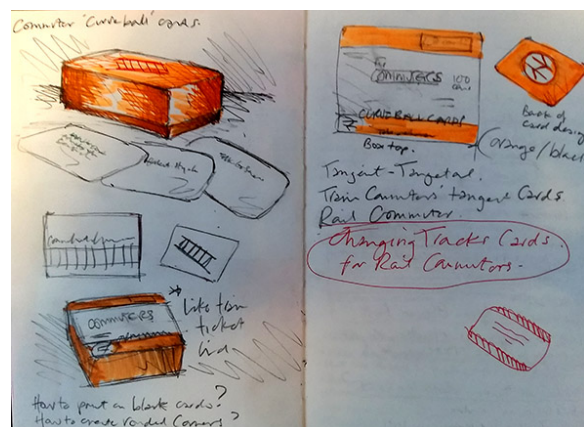 Commuter 'Curveball' cards.
COMMUTERS
* Like train
ticket
How to print on blank cards?
How to create rounded Corners?
The
COMMUTERS
100
CURVEBALL CARDS
Box top.
Back of
card design
(orange/black
Tangent-Tangetal.
Train Commuters' tangent Cards.
Rail Commuter.
Changing Tracks Cards
for Rail Commutors.